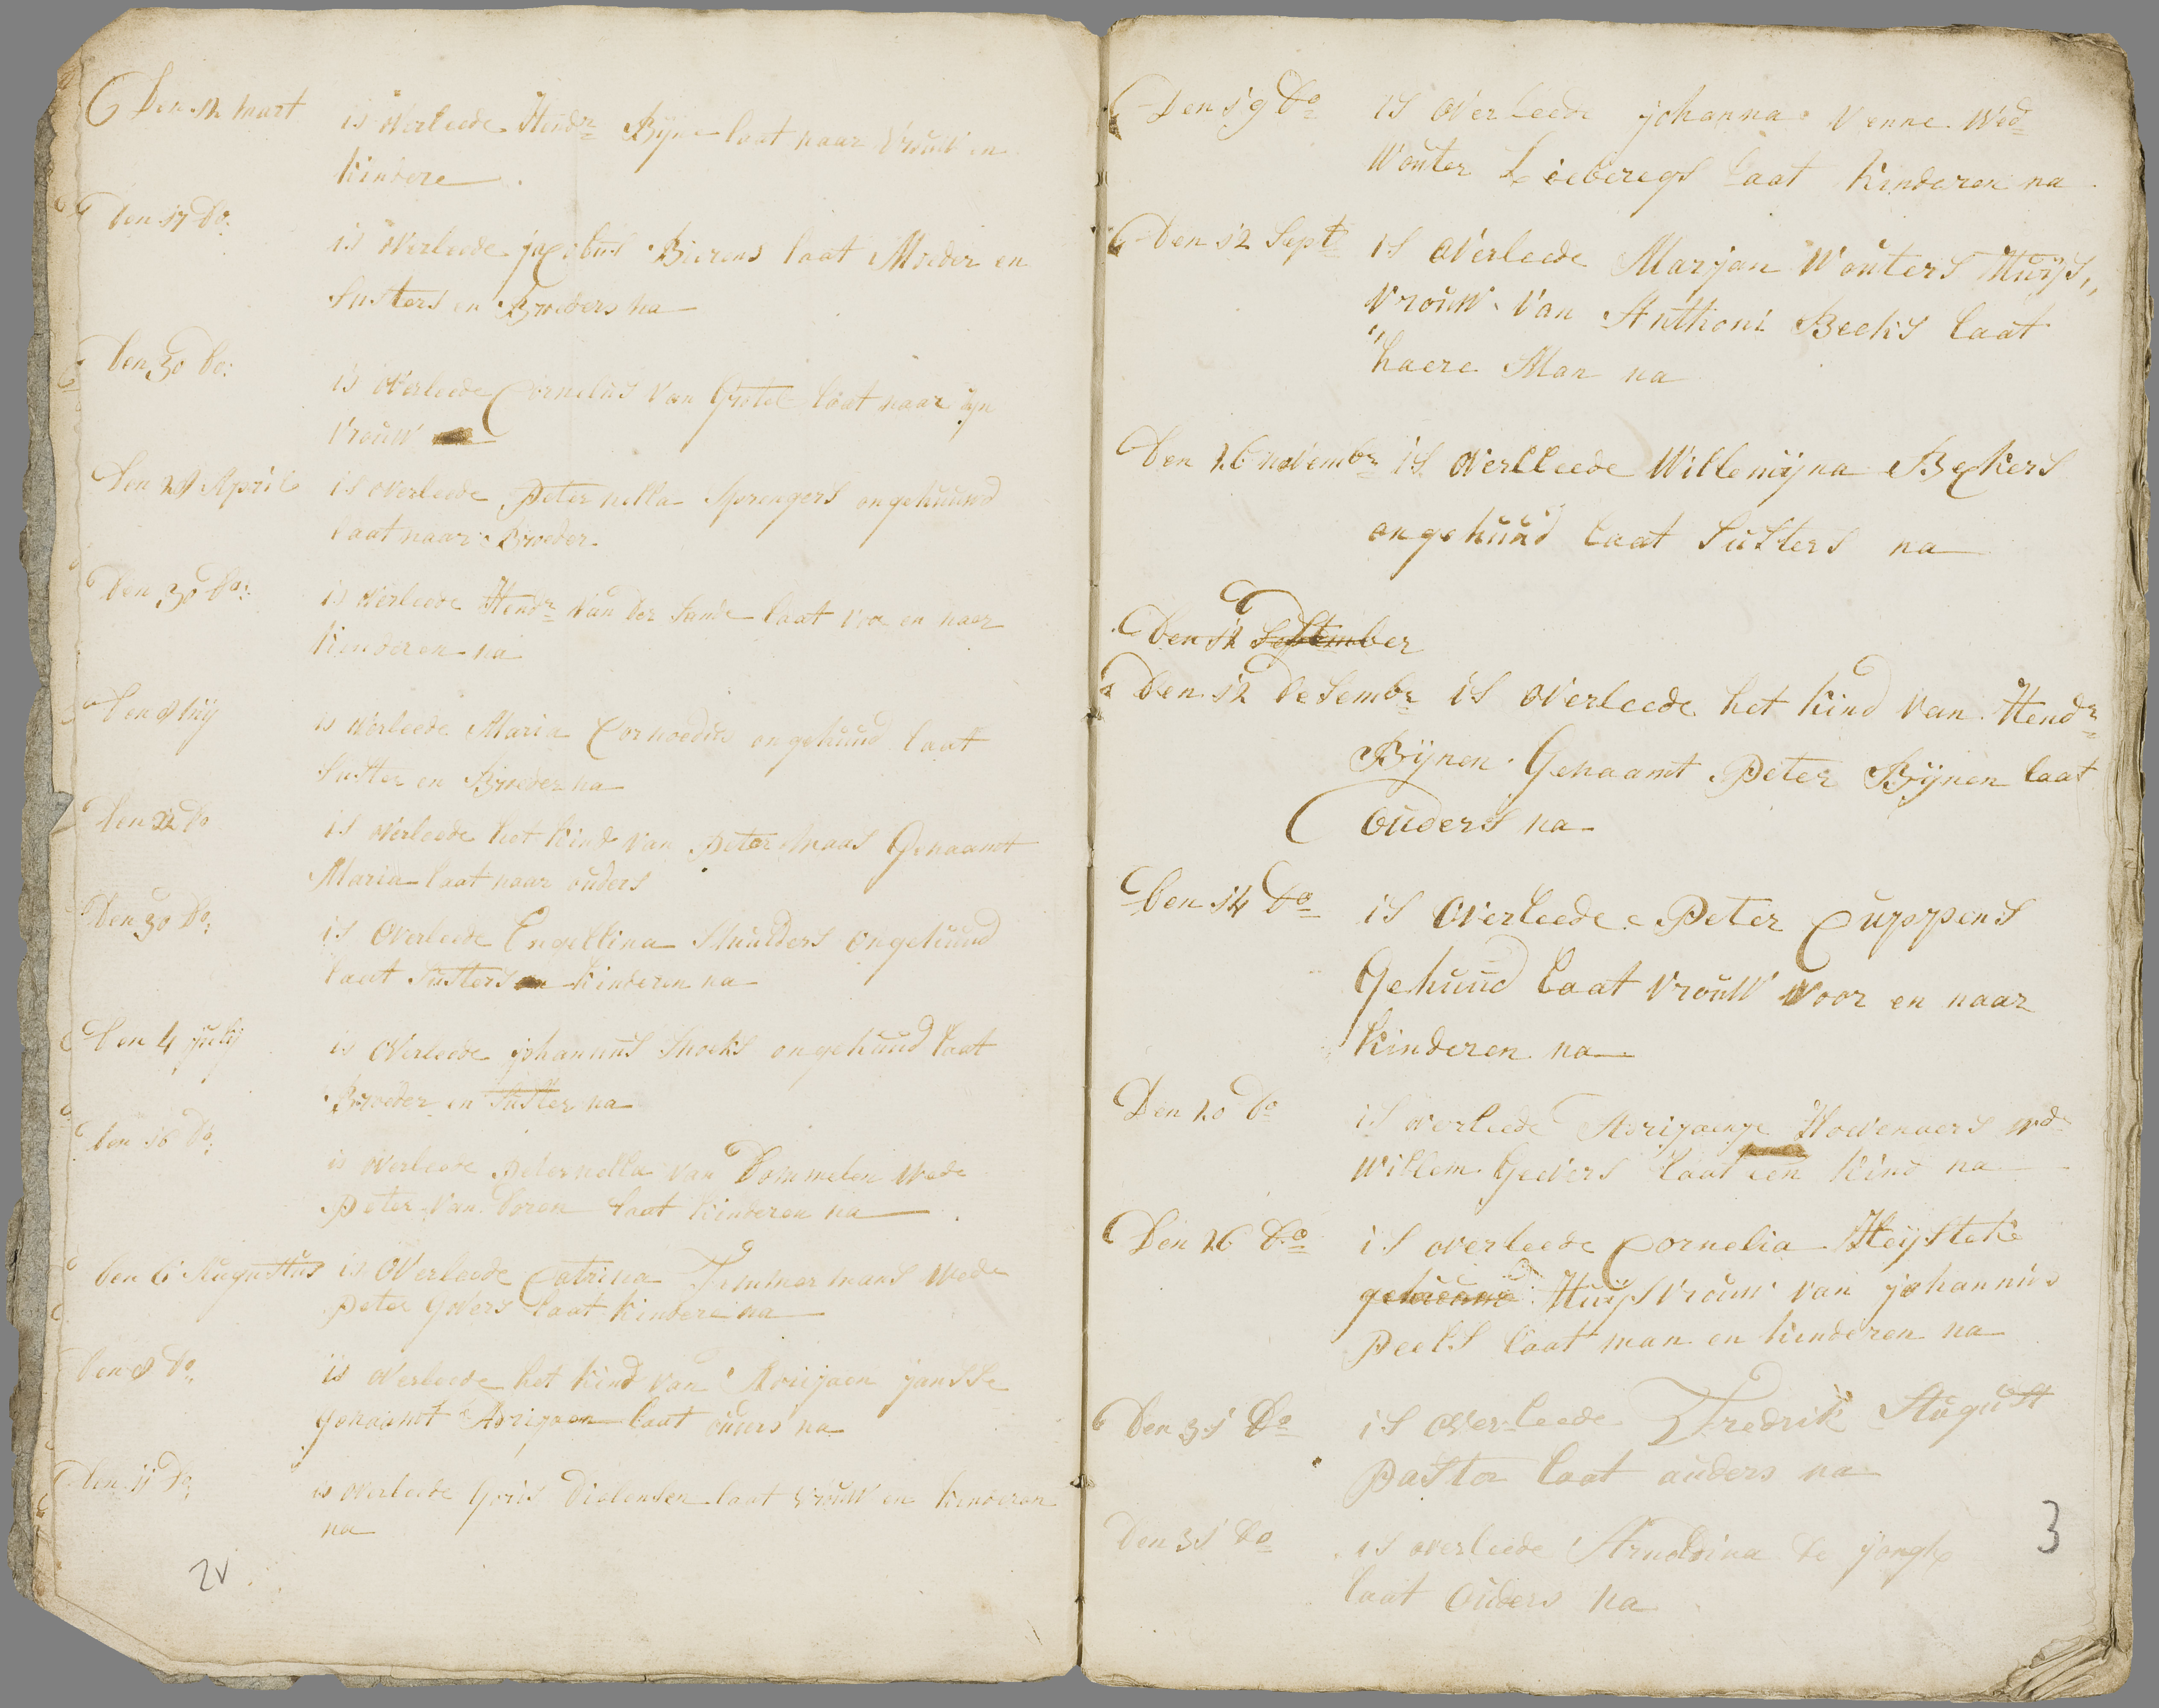 Den 12 Mart is overleede Hendr Bijne laat naar Vrouw en
kindere
Den 17 do: is overleede jacobus Bierens laat Moeder en
Susters en Broeders na
Den 30 do: is overleede Cornelus van Grotel laat naar sijn
Vrouw
Den 28 April is overleede Peternella Sprengers ongehuuwd
laat naar Broeder
Den 30 do: is overleede Hendr van der Sande laat voor en naar
kinderen na
Den 8 Mij is overleede Maria ongehuud laat
Suster en Broeder na
Den 22 do is overleede het kind van Peter Maas Genaamt
Maria laat naar ouders
Den 30 do: is overleede Engellina Smulders ongehuud
laat Susters kinderen na
Den 4 julij is overleede johannus Snoeks ongehuud laat
Broeder en Suster na
Den 16 do: is overleede peternella van Dommelen wede
Peter van Doren laat kinderen na
Den 6 Augustus is overleede Catrina Timmermans wede
Peter Govers laat kindere na
Den 8 do. is overleede het kind van Arijaen janssе
genaamt Adrijaen laat ouders na
Den 11 do. is overleede Goris Dielensen laat vrouw en kinderen
na
2v
Den 19 do is overleede johanna Venne Wed
Wouter Lieberegs laat kinderen na
Den 12 Sept is overleede Maryan Wouters Huijs,,
vrouw van Anthoni Beeks laat
"haere Man na
Den 26 novembr is overlleede Willemijna Beckers
ongehuud laat Susters na
Den 12 September
Den 12 Desembr is overleede het kind van Hendr
Bijnen Genaamt Peter Bijnen laat
Ouders na
Den 14 do is overleede Peter Cuppens
Gehuud laat vrouw voor en naar
kinderen na
Den 20 do is overleede Adrijaentje Hoevenaers wd
Willem Gevers laat een kind na
Den 26 do is overleede Cornelia Heijsteke
gehuuwd Huijsvrouw van johannus
Peels laat man en kinderen na
Den 31 do is overleede Fredrik August
Pastor laat ouders na
Den 31 do is overleede Arnoldina de jongh
laat Ouders na
3